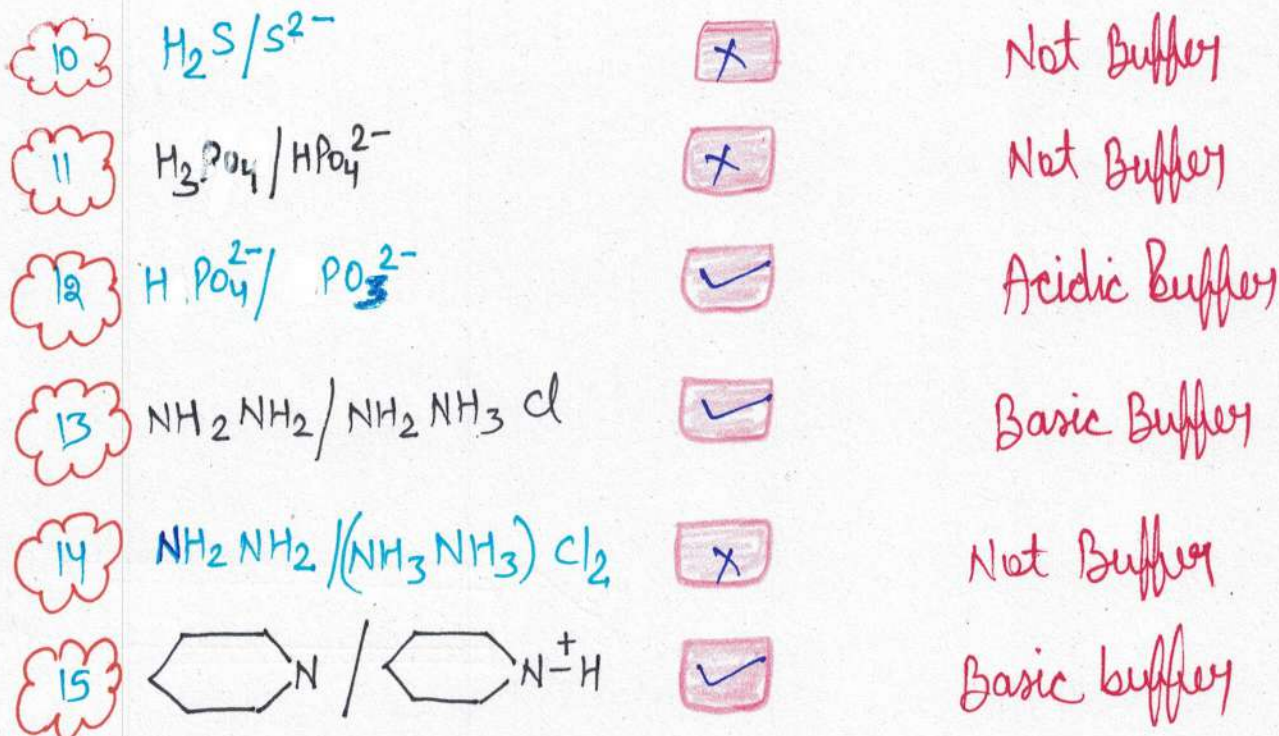 10 H₂S/S²⁻ × Not Buffer
11 H₃PO₄/HPO₄²⁻ × Not Buffer
12 HPO₄²⁻/ PO₃²⁻ ✓ Acidic Buffer
13 NH₂NH₂/NH₂NH₃Cl ✓ Basic Buffer
14 NH₂NH₂/(NH₃NH₃)Cl₂ × Not Buffer
15 N / N⁺-H ✓ Basic buffer